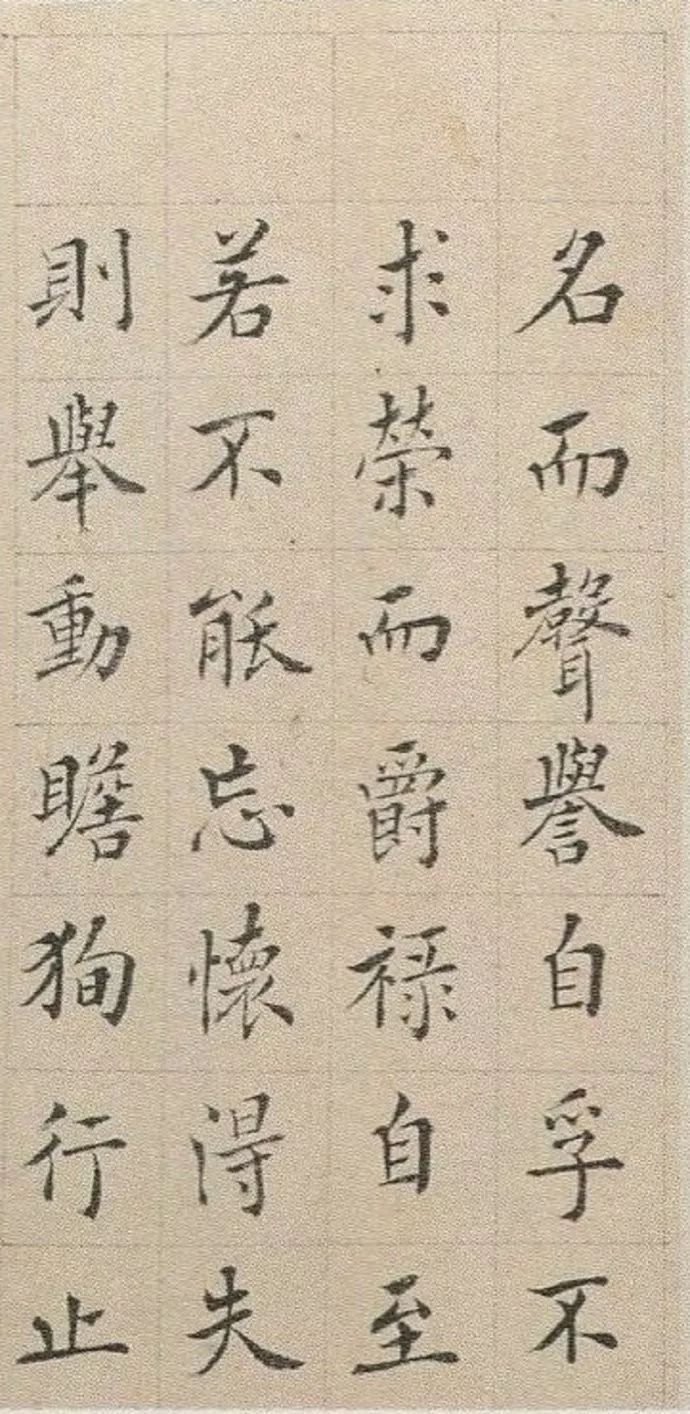 名而聲譽自孚不
求榮而爵禄自至
若不能忘懷得失
則舉動瞻狥行止